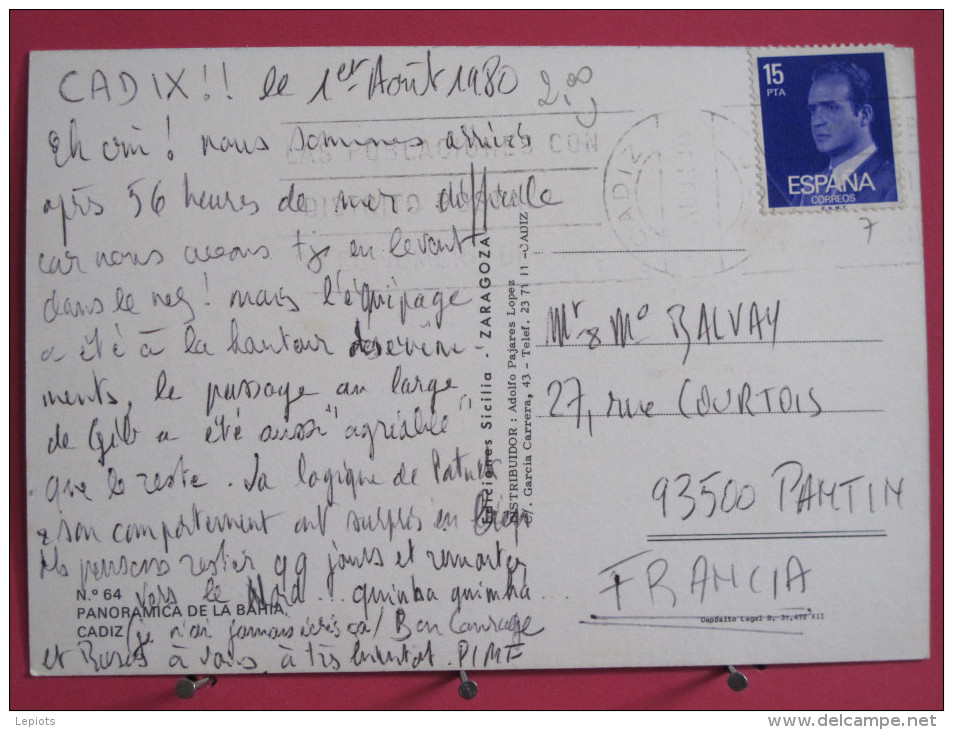 CADIX!! le 1er Août 1980
2,00
Eh oui! nous sommes arrivés
après 56 heures de mer difficile
car nous avons tjs eu levant
dans le nez! mais l'équipage
a été à la hauteur des évène-
ments, le passage au large
de Gib a été aussi "agréable"
que le reste. La logique de
& son comportement ont surpris en bien
Ns pensons rester qq jours et remonter
vers le Nord... quimba quimba...
(je n'ai jamais écris ça) Bon Courage
et Bises à vous à très bientôt.
N.º 64
PANORAMICA DE LA BAHIA
CADIZ
Ediciones Sicilia - ZARAGOZA
DISTRIBUIDOR : Adolfo Pajares Lopez
C/. Garcia Carrera, 43 - Telef. 23 71 11 - CADIZ
LAS POBLACIONES CON
DISTRITO
CADIZ
15
PTA
ESPAÑA
CORREOS
7
Mr & Me BALVAY
27, rue COURTOIS
93500 PANTIN
FRANCIA
Depósito Legal B. 31.472 XII
Lepiots
www.delcampe.net